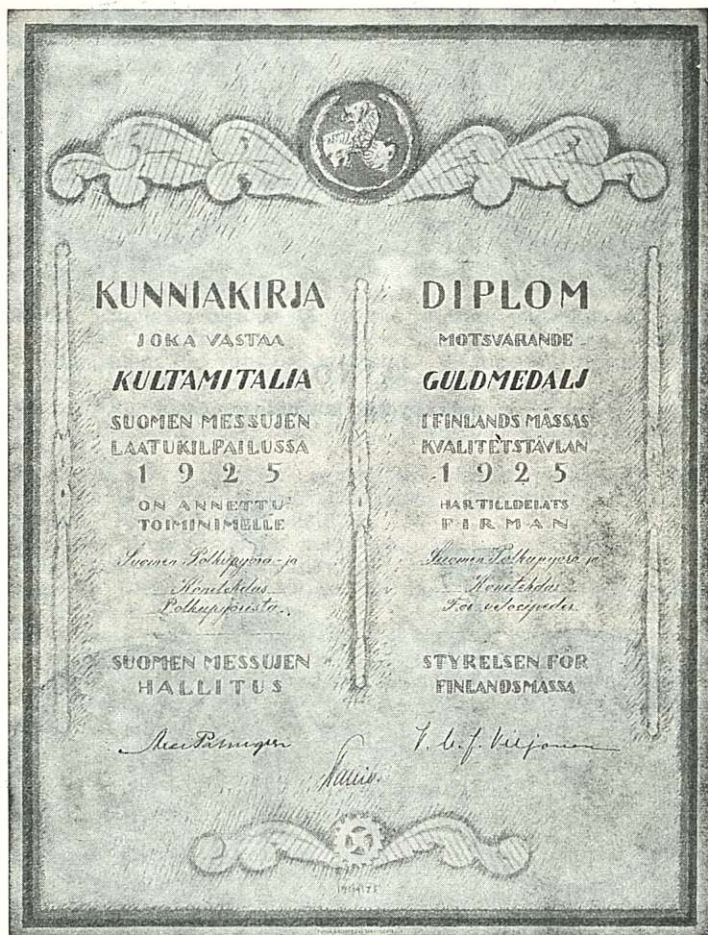 KUNNIAKIRJA
JOKA VASTAA
KULTAMITALIA
SUOMEN MESSUJEN
LAATUKILPAILUSSA
1925
ON ANNETTU
TOIMINIMELLE
Suomen Polkupyörä- ja
Konetehdas
Polkupyöristä.
SUOMEN MESSUJEN
HALLITUS
DIPLOM
MOTSVARANDE
GULDMEDALJ
I FINLANDS MÄSSAS
KVALITETSTÄVLAN
1925
HAR TILLDELATS
FIRMAN
Suomen Polkupyörä ja
Konetehdas
För velocipeder
STYRELSEN FÖR
FINLANDSMÄSSA